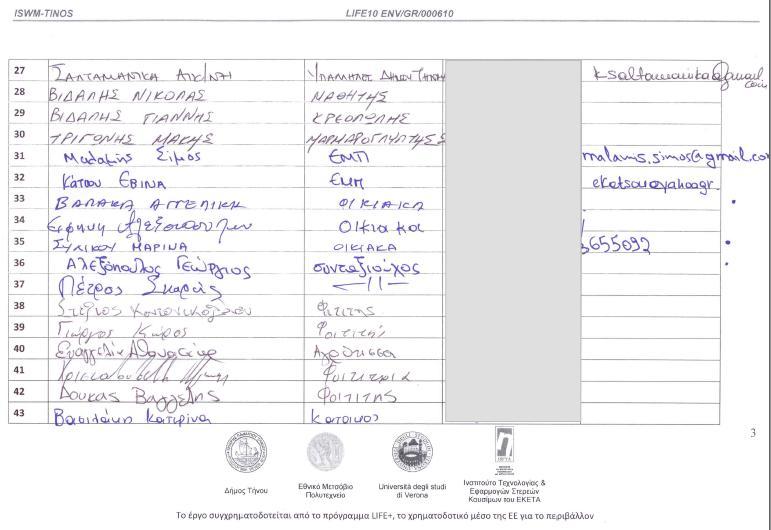 ISWM-TINOS LIFE10 ENV/GR/000610
27 ΣΑΛΤΑΜΑΝΙΚΑ ΥΠΑΛΛΗΛΟΣ ΔΗΜΟΥ ΤΗΝΟΥ ksaltamanika@gmail.com
28 ΒΙΔΑΛΗΣ ΝΙΚΟΛΑΣ ΜΑΘΗΤΗΣ
29 ΒΙΔΑΛΗΣ ΓΙΑΝΝΗΣ ΚΡΕΟΠΩΛΗΣ
30 ΤΡΙΓΩΝΗΣ ΜΑΚΗΣ ΜΑΡΜΑΡΟΓΛΥΠΤΗΣ
31 Μαλαμης Σιμος ΕΜΠ malamis.simos@gmail.co
32 Κάτσου ΕΒΙΝΑ ΕΜΠ
33 ΒΑΛΑΚΑ ΑΓΓΕΛΙΚΗ ΟΙΚΙΑΚΑ
34 Ειρήνη Αλεξοπούλου Οικιακα
35 ΜΑΡΙΝΑ ΟΙΚΙΑΚΑ 3655092
36 Αλεξόπουλος Γεώργιος συνταξιούχος
37 Πέτρος Σκαρής —||—
38 Φοιτητης
39 Γιώργος Φοιτητής
40 Ευαγγελία Αγρότισσα
41 Φοιτήτρια
42 Δουκας Βαγγελης Φοιτιτης
43 Βασιλάκη Κατερίνα Κατοικος
3
Δήμος Τήνου
Εθνικό Μετσόβιο Πολυτεχνείο
Università degli studi di Verona
Ινστιτούτο Τεχνολογίας & Εφαρμογών Στερεών Καυσίμων του ΕΚΕΤΑ
Το έργο συγχρηματοδοτείται από το πρόγραμμα LIFE+, το χρηματοδοτικό μέσο της ΕΕ για το περιβάλλον